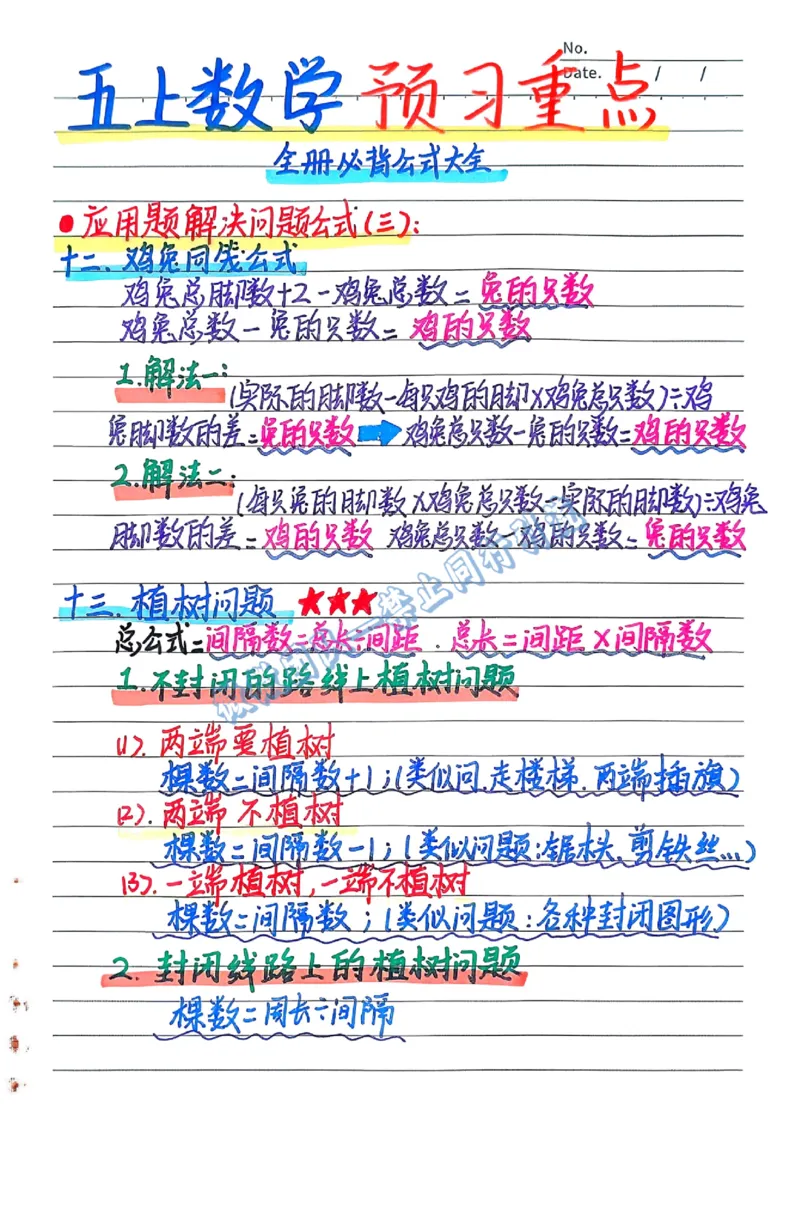 No.
Date. / /
五上数学 预习重点
全册必背公式大全
●应用题解决问题公式(三):
十二.鸡兔同笼公式
鸡兔总脚数÷2-鸡兔总数=兔的只数
鸡兔总数-兔的只数=鸡的只数
1.解法一:
(实际的脚数-每只鸡的脚×鸡兔总只数)÷鸡
兔脚数的差=兔的只数➡鸡兔总只数-兔的只数=鸡的只数
2.解法二:
(每只兔的脚数×鸡兔总只数-实际的脚数)÷鸡兔
脚数的差=鸡的只数 鸡兔总只数-鸡的只数=兔的只数
十三.植树问题 ★★★
总公式=间隔数=总长÷间距.总长=间距×间隔数
1.不封闭的路线上植树问题
(1).两端要植树
棵数=间隔数+1;(类似问.走楼梯.两端插旗)
(2).两端不植树
棵数=间隔数-1;(类似问题:锯木头.剪铁丝...)
(3).一端植树,一端不植树
棵数=间隔数;(类似问题:各种封闭图形)
2.封闭线路上的植树问题
棵数=周长÷间隔